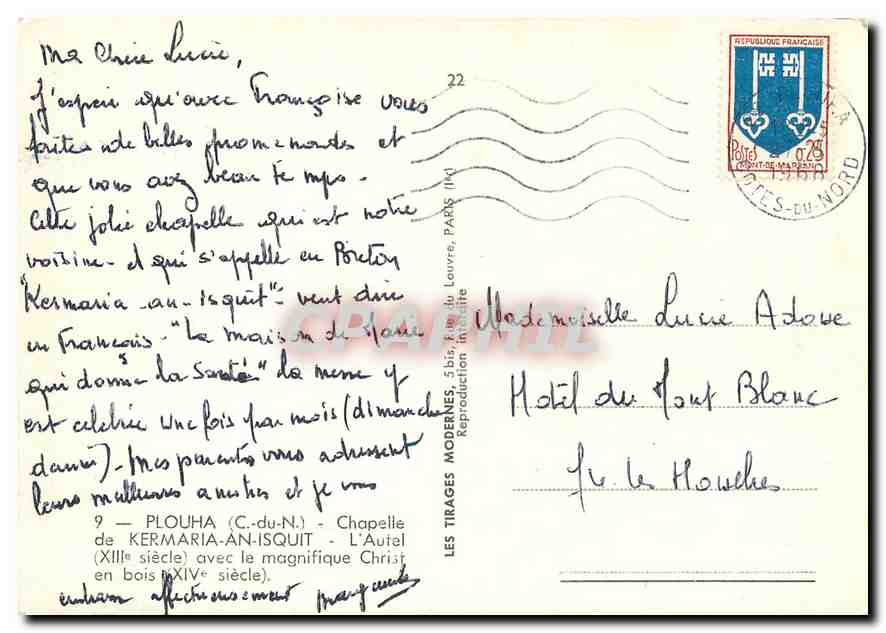 Ma Chère Lucie,
J'espère qu'avec Françoise vous
faites de belles promenades et
que vous avez beau temps -
Cette jolie chapelle qui est notre
voisine - et qui s'appelle en Breton
"Kermaria-an-isquit" - veut dire
en Français - "La maison de Marie
qui donne la Santé" La messe y
est célébrée une fois par mois (dimanche
dernier) - Mes parents vous adressent
leurs meilleures amitiés et je vous
9 — PLOUHA (C.-du-N.) - Chapelle
de KERMARIA-AN-ISQUIT - L'Autel
(XIIIe siècle) avec le magnifique Christ
en bois (XIVe siècle).
embrasse affectueusement Marguerite
22
LES TIRAGES MODERNES, 5 bis, Rue du Louvre, PARIS (1er)
Reproduction Interdite
CPAPHIL
REPUBLIQUE FRANÇAISE
POSTES 0,25
MONT-DE-MARSAN
1968
COTES-DU-NORD
Mademoiselle Lucie
Hôtel du Mont Blanc
les Houches